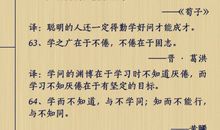 ——《荀子》
译：聪明的人还一定得勤学好问才能成才。
63、学之广在于不倦，不倦在于固志。
——晋·葛洪
译：学问的渊博在于学习时不知道厌倦，而
学习不知厌倦在于有坚定的目标。
64、学而不知道，与不学同；知而不能行，
与不知同。